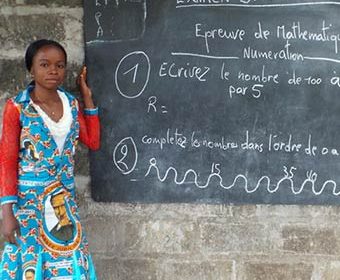 E P
A
EXAMEN
Epreuve de Mathématiqu
Numération
1 Ecrivez le nombre de 100 à
par 5
R=
2 completez les nombres dans l'ordre de 0 a
R 15 35 40